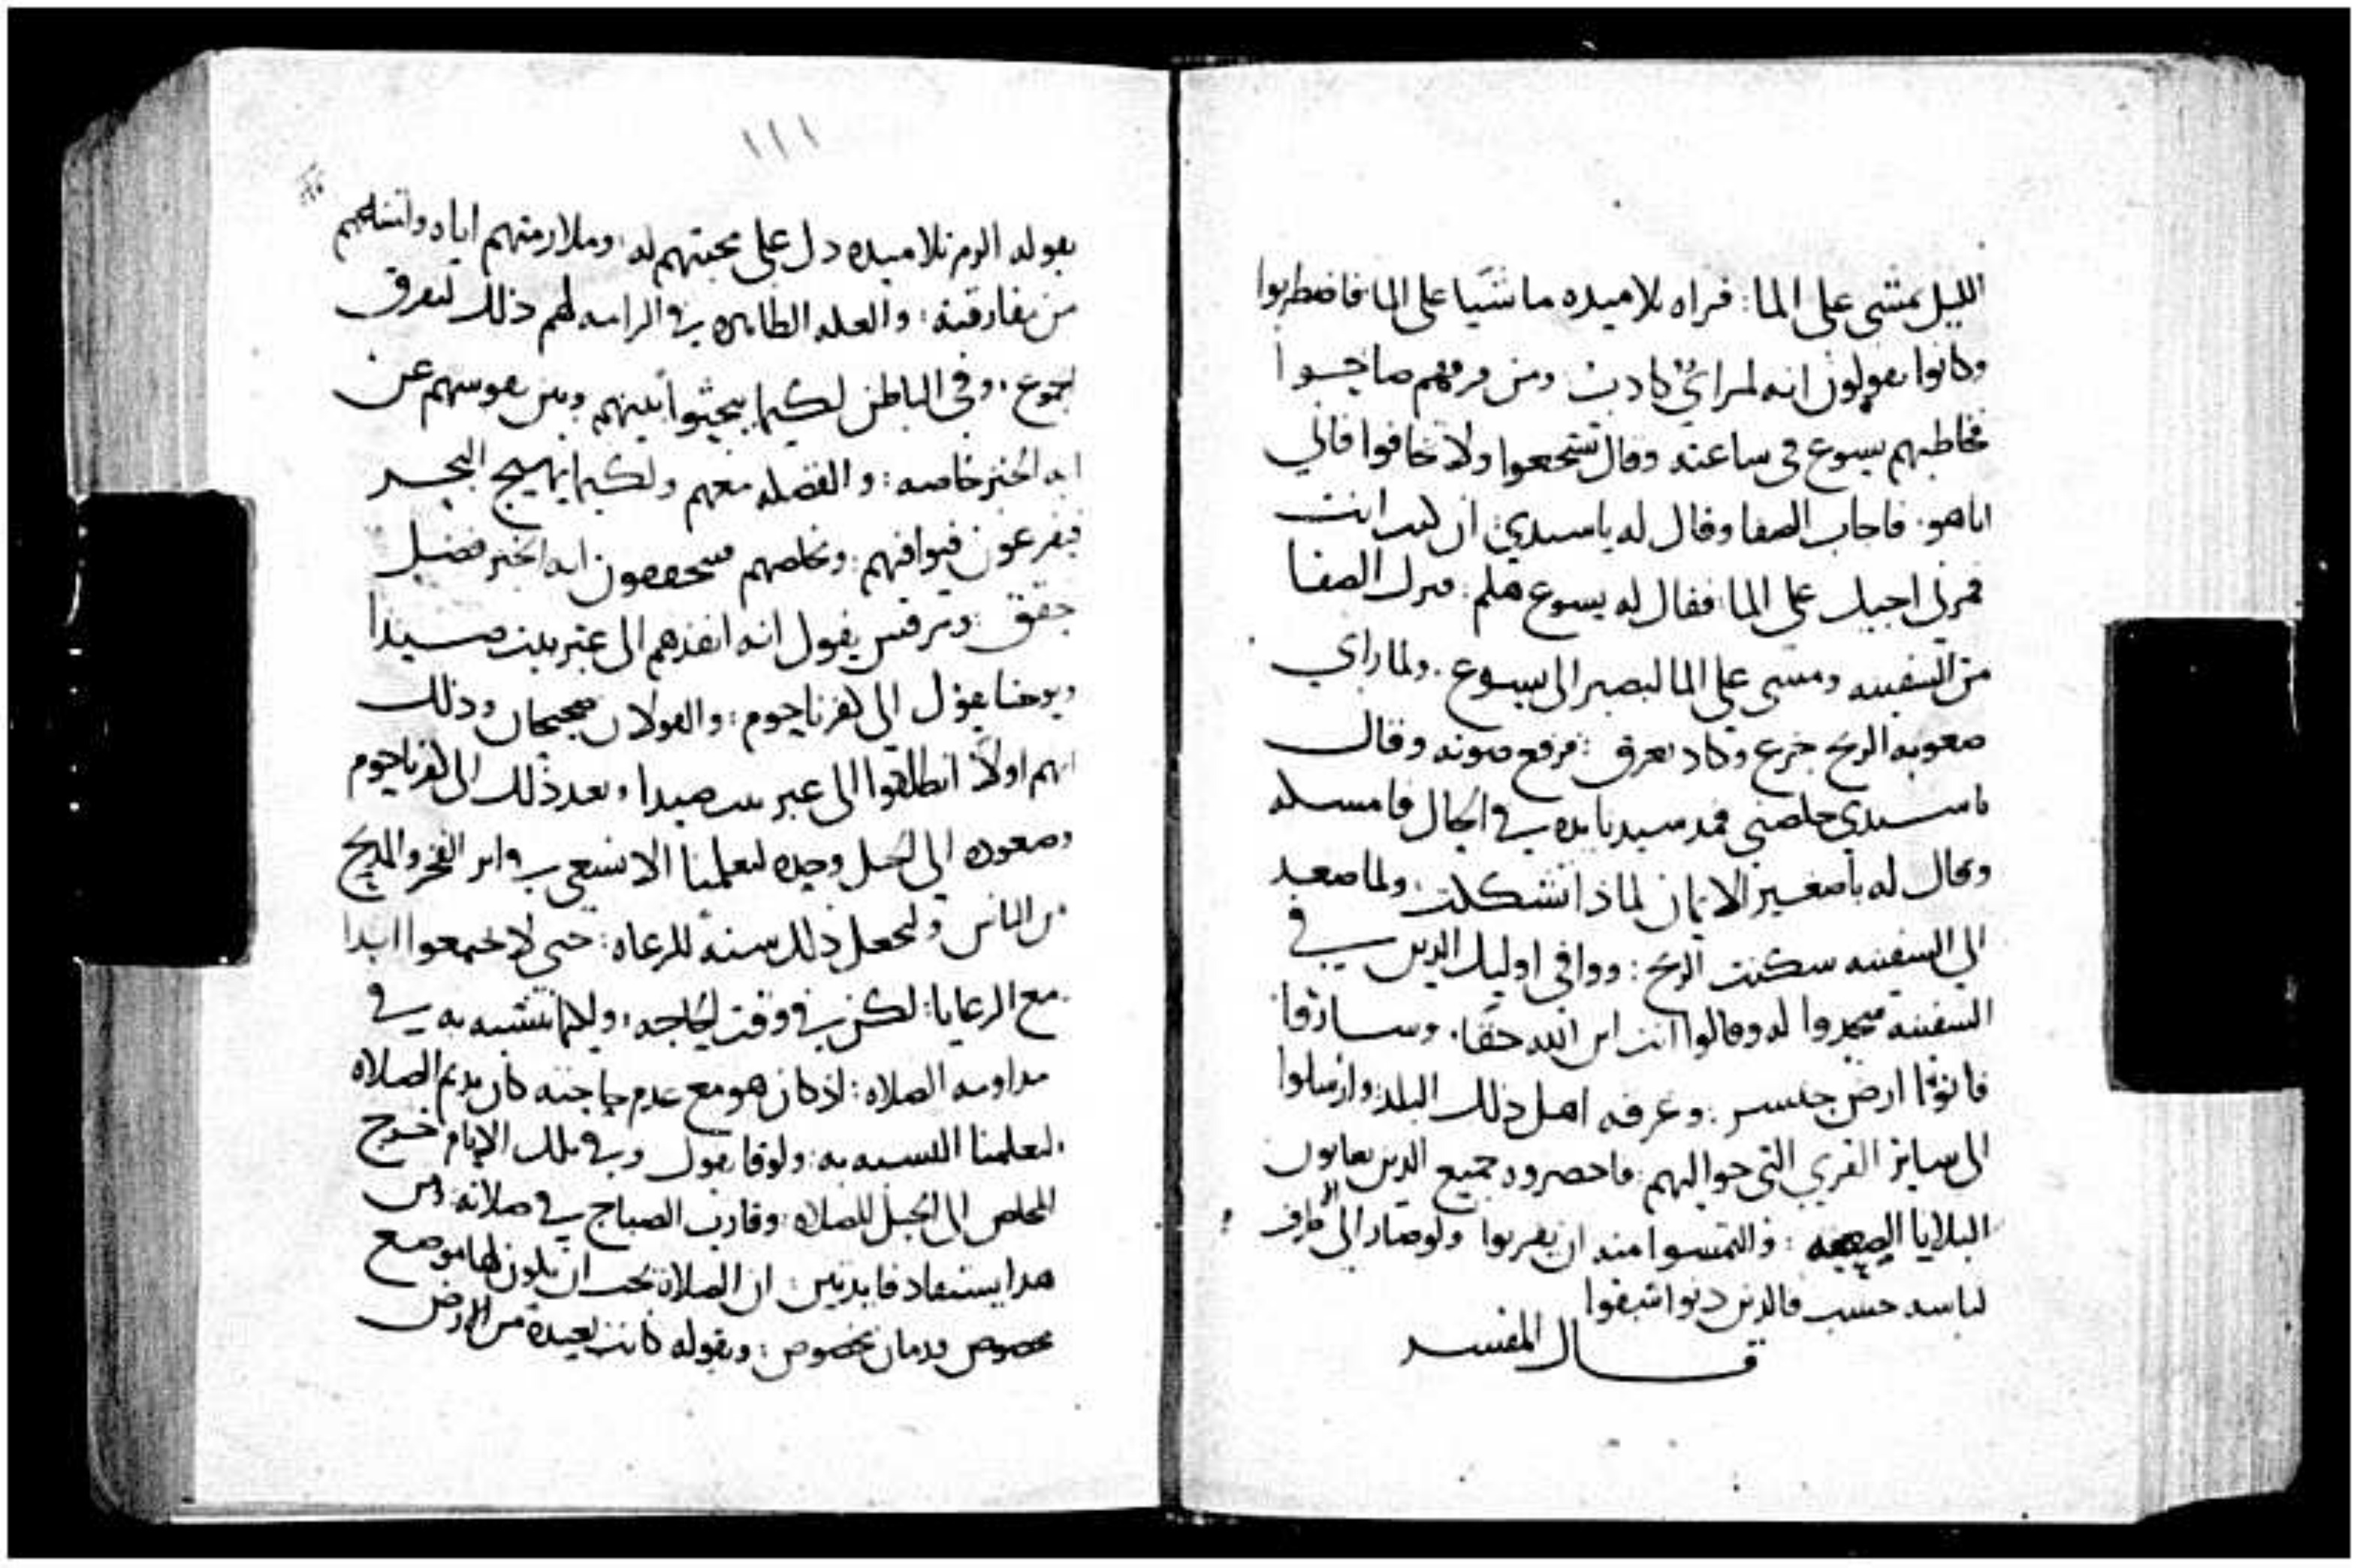 الليل يمشي على الما: فراه تلاميده ماشيا على الما فاضطربوا
وكانوا يقولون انه لمراي كادب ومن فرقهم صاحبوا
فخاطبهم يسوع في ساعته وقال تشجعوا ولا تخافوا فاني
انا هو. فاجاب الصفا وقال له يا سيدي ان كنت انت
فمرني اجيك على الما. فقال له يسوع هلم: فنزل الصفا
من السفينه ومشى على الما ليصير الى يسوع. ولما راي
صعوبه الريح جزع وكاد يغرق: فرفع صوته وقال
يا سيدي خلصني فمد سيدنا يده في الحال فامسكه
وقال له يا صغير الايمان لماذا تشككت ولما صعد
الى السفينه سكنت الريح: ووافى اوليك الدين في
السفينه فسجدوا له وقالوا انت ابن الله حقا. وساروا
فاتوا ارض جنسر: وعرفه اهل ذلك البلد وارسلوا
الى ساير القري التي حواليهم فاحضروه جميع الدين
البلايا الصعبه: والتمسوا منه ان يقربوا ولو صار الى طرف
لباسه حسب فالدين دنوا شفوا
قال المفسر
١١١
بقوله الزم تلاميده دل على محبتهم له: وملازمتهم اياه
من مفارقته: والعله الظاهره في الزامه لهم ذلك لتفرق
الجموع. وفي الباطن لكيما يبحثوا بينهم وبين نفوسهم عن
ايه الخبز خاصه: والفضله معهم ولكيما يهيج البحر
فيفزعون فيوافيهم: ويخلصهم فيتحققون ايه الخبز فضل
تحقق: ومرقس يقول انه انفذهم الى عبر بيت صيدا
ويوحنا يقول الى كفرناحوم: والقولان صحيحان وذلك
انهم اولا انطلقوا الى عبر بيت صيدا وبعد ذلك الى كفرناحوم
وصعوده الى الجبل وحده ليعلمنا الا نسعى في اثر الفخر والمديح
من الناس وليجعل ذلك سنه للرعاه: حتى لا يجتمعوا ابدا
مع الرعايا: لكن في وقت الحاجه: وكيما نتشبه به في
مداومه الصلاه: اذ كان هو مع عدم حاجته كان يديم الصلاه
ليعلمنا التشبه به: ولوقا يقول وفي تلك الايام خرج
المخلص الى الجبل للصلاه: وقارب الصباح في صلاته: ومن
هدا يستفاد فايدتين: ان الصلاة يجب ان يكون لها موضع
مخصوص وزمان مخصوص: وبقوله كانت بعيدة من الارض